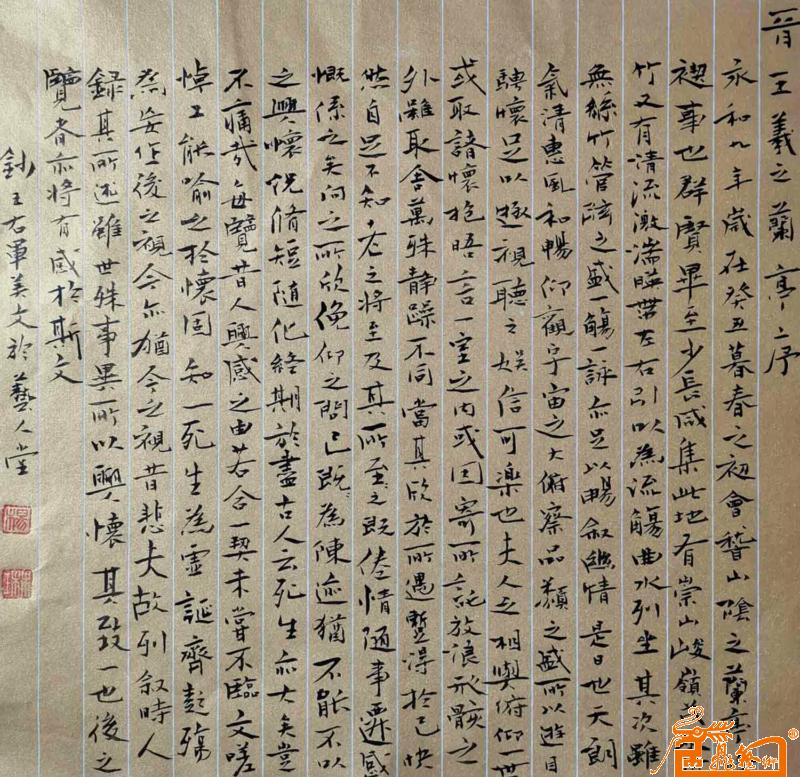 晉王羲之蘭亭序
永和九年歲在癸丑暮春之初會稽山陰之蘭亭
禊事也群賢畢至少長咸集此地有崇山峻嶺茂
竹又有清流激湍暎帶左右引以為流觴曲水列坐其次雖
無絲竹管弦之盛一觴一詠亦足以暢敘幽情是日也天朗
氣清惠風和暢仰觀宇宙之大俯察品類之盛所以遊目
騁懷足以極視聽之娛信可樂也夫人之相與俯仰一世
或取諸懷抱晤言一室之內或因寄所託放浪形骸之
外雖取舍萬殊靜躁不同當其欣於所遇暫得於己快
然自足不知老之將至及其所至之既倦情隨事遷感
慨係之矣向之所欣俛仰之間已既為陳迹猶不能不以
之興懷況脩短隨化終期於盡古人云死生亦大矣豈
不痛哉每覽昔人興感之由若合一契未嘗不臨文嗟
悼不能喻之於懷固知一死生為虛誕齊彭殤
為妄作後之視今亦猶今之視昔悲夫故列敘時人
錄其所述雖世殊事異所以興懷其致一也後之
覽者亦將有感於斯文
鈔王右軍美文於藝人堂